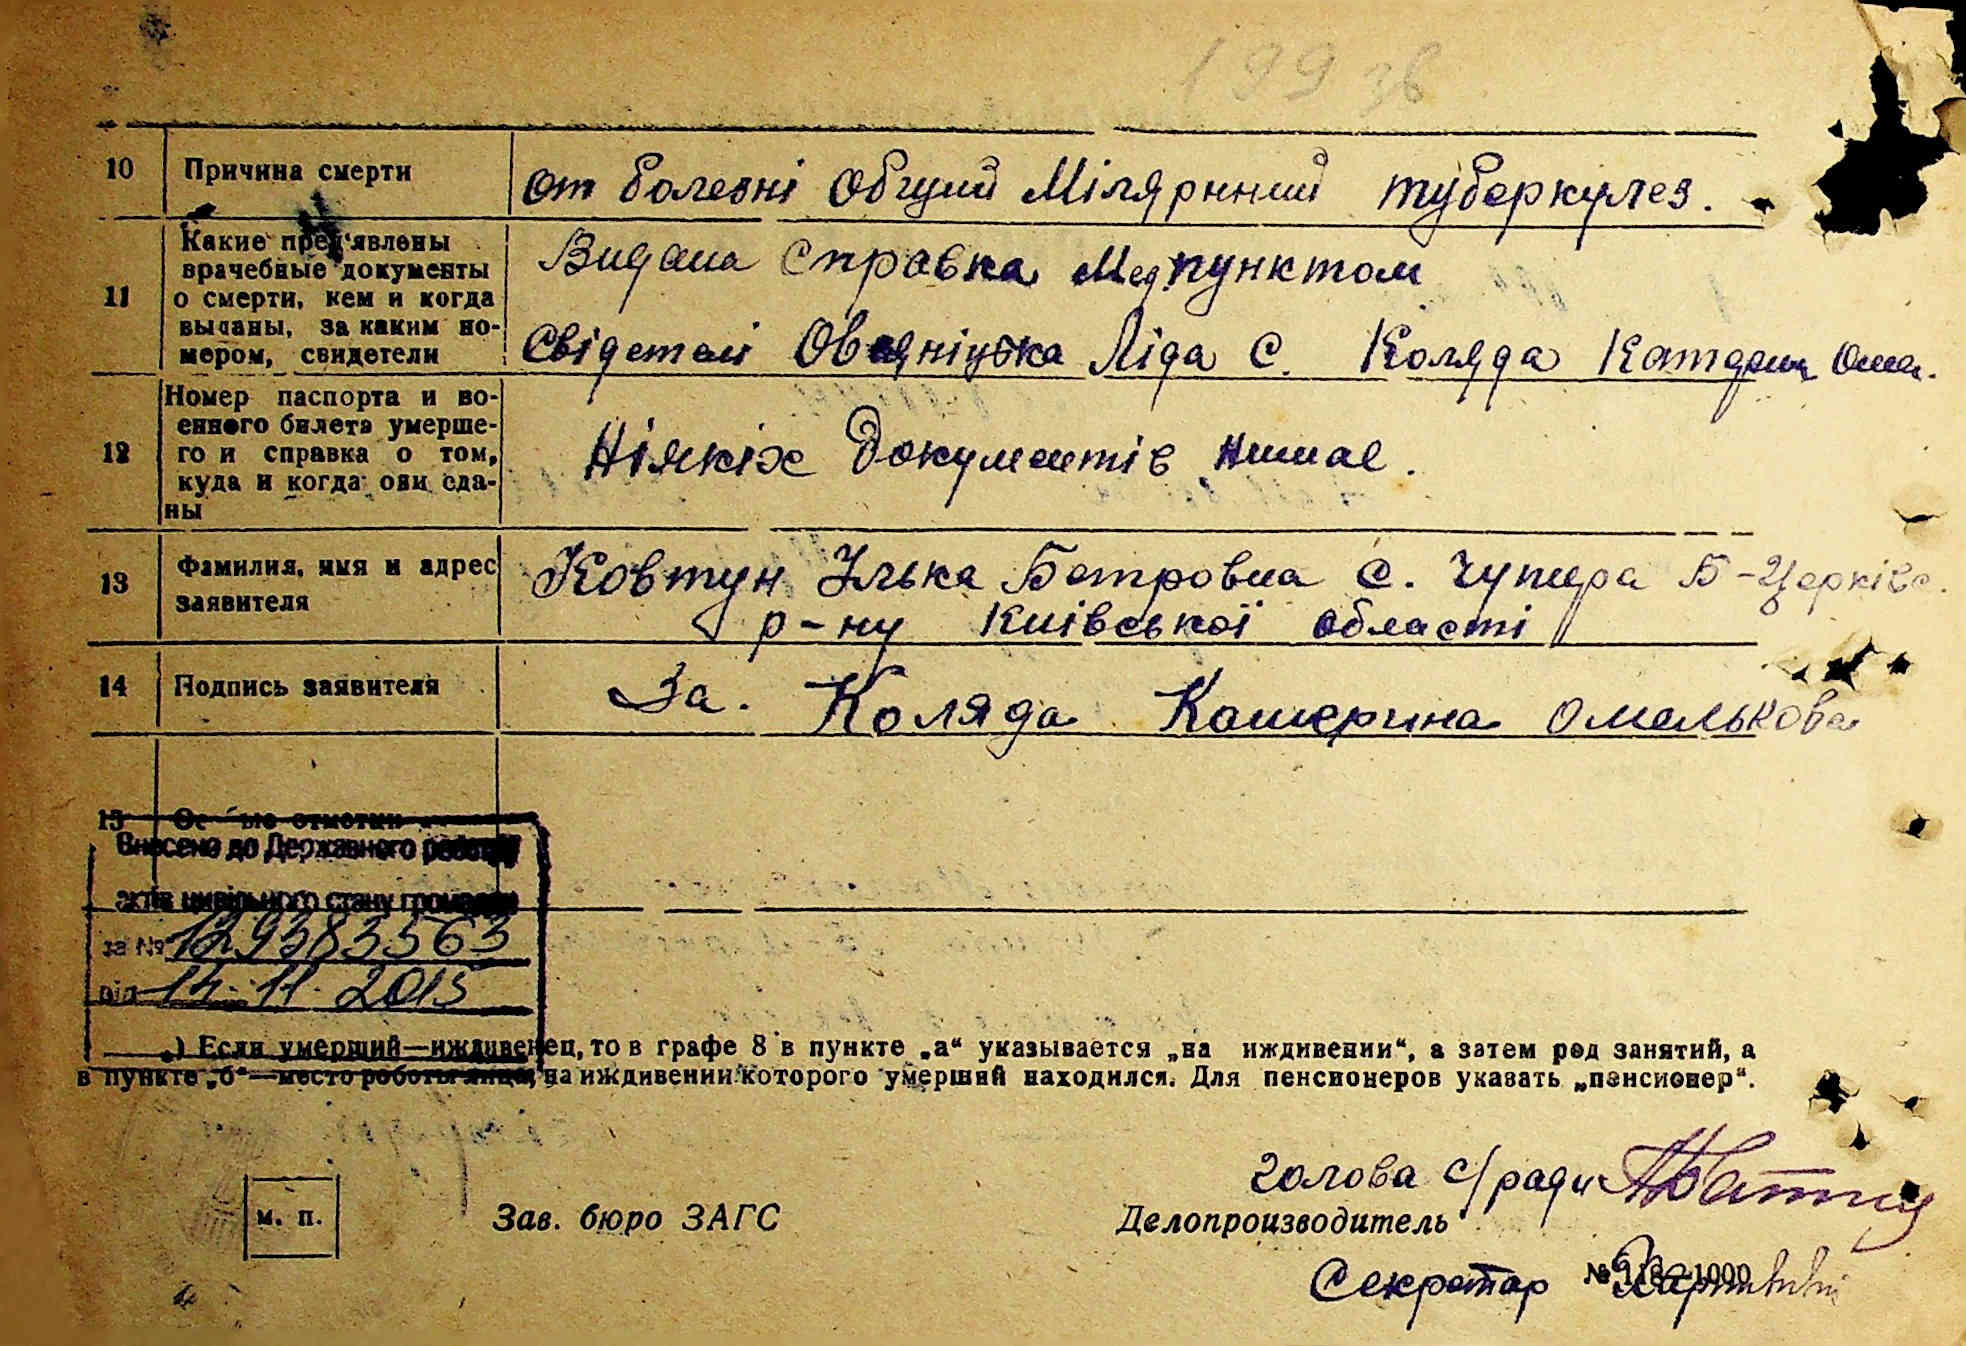 199 зв
10 Причина смерти от болезні Общий Мілярнний туберкулез.
11 Какие пред'явлены врачебные документы о смерти, кем и когда выданы, за каким но-мером, свидетели
Видана справка Медпунктом
Свідетелі Ліда С. Коляда Катерин Омел.
12 Номер паспорта и во-
енного билета умерше-
го и справка о том,
куда и когда они сда-
ны
Ніякіх документів нимає.
13 Фамилия, имя и адрес
заявителя
Ковтун Улька Петровна с. Чупера Б-Церківс.
р-ну Київської області
14 Подпись заявителя За. Коляда Катерина Омелькова
15 Особые отметки
Внесено до Державного реєстру
актів цивільного стану громадян
за № 129383563
від 14.11.2015
*) Если умерший—иждивенец, то в графе 8 в пункте „а“ указывается „на иждивении“, а затем род занятий, а
в пункте „б“—место роботы лица, на иждивении которого умерший находился. Для пенсионеров указать „пенсионер“.
Голова с/ради
м. п. Зав. бюро ЗАГС Делопроизводитель
Секретар